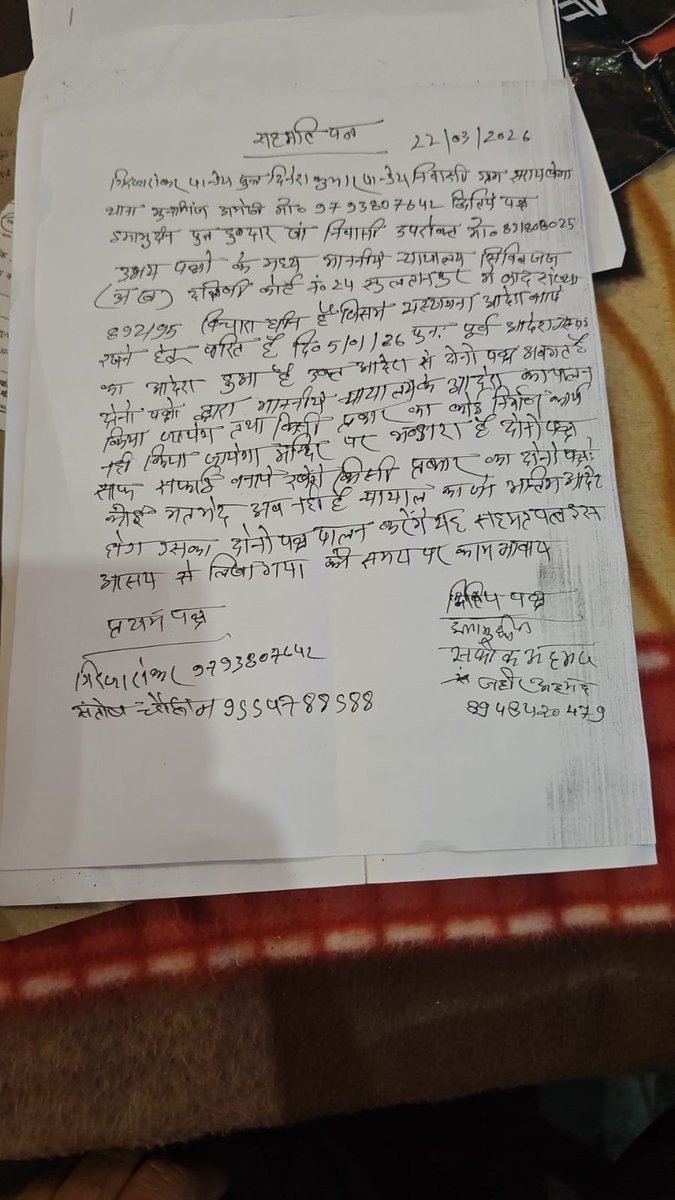 सहमति पत्र 22/03/2026
गिरिजाशंकर पाण्डेय पुत्र दिनेश कुमार पाण्डेय निवासी ग्राम सरायखेमा
थाना मुसाफिरखाना अमेठी मो० 9793807642 द्वितीय पक्ष
इमामुद्दीन पुत्र खां निवासी उपरोक्त मो०
उभय पक्षो के मध्य माननीय न्यायालय सिविल जज
(अ ख) दक्षिणी कोर्ट नं० 24 सुलतानपुर मे वाद संख्या
892/95 विचाराधीन है जिसमे आदेश
रखने हेतु पारित है दि० 5/01/26 पुनः पूर्व आदेश
का आदेश हुआ है उक्त आदेश से दोनो पक्ष अवगत है
दोनो पक्षो द्वारा माननीय न्यायालय के आदेश का पालन
किया जायेगा तथा किसी प्रकार का कोई निर्माण कार्य
नही किया जायेगा मन्दिर पर भन्डारा है दोनो पक्ष
साफ सफाई बनाये रखेगे किसी प्रकार का दोनो पक्षो
कोई मतभेद अब नही है न्यायालय का जो अन्तिम आदेश
होगा उसका दोनो पक्ष पालन करेंगे यह सहमत पत्र इस
आसय से लिखा गया की समय पर काम आवाय
प्रथम पक्ष
द्वितिय पक्ष
गिरिजाशंकर 9793807642
इमामुद्दीन
संतोष चौहान 9554788588
अहमद
जहीर अहमद
8948420479